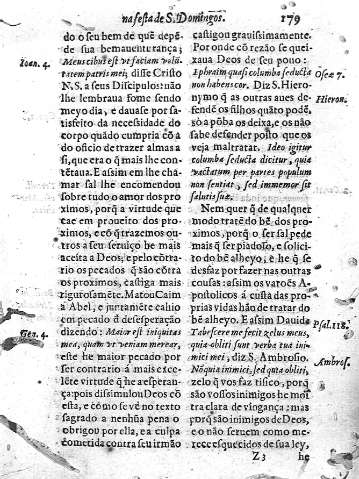 na festa de S. Domingos. 179
do seu bem de quẽ depẽ-
de sua bemauenturança;
Ioan. 4.
Meus cibus est vt faciam volũ
tatem patris mei; disse Cristo
N. S. a seus Discipulos: não
lhe lembraua fome sendo
meyo dia, e dauase por sa-
tisfeito da necesidade do
corpo quãdo cumpria cõ a
do oficio de trazer almas a
si, que era o q̃ mais lhe con-
tẽtaua. E assim em lhe cha-
mar sal lhe encomendou
sobre tudo o amor dos pro
ximos, porq̃ a virtude que
caẽ em proueito dos pro-
ximos, e cõ q̃ trazemos ou-
tros a seu seruiço he mais
aceita a Deos; e pelo cõtra-
rio os pecados q̃ são cõtra
os proximos, castiga mais
rigurosamẽte. Matou Caim
a Abel, e juntamẽte caĩo
em pecado de desesperação
Gen. 4.
dizendo: Maior est iniquitas
mea, quam vt veniam merear,
este he maior pecado por
ser contrario à mais exce-
lẽte virtude q̃ he a esperan-
ça: pois dissimulou Deos cõ
esta, e como se vé no texto
sagrado a nenhũa pena o
obrigou por ella, e a culpa
cometida contra seu irmão
castigou grauissimamente.
Por onde cõ rezão se quei-
xaua Deos de seu pouo:
Ephraim quasi columba seducta
Oseæ 7.
non habens cor. Diz S. Hiero-
Hieron.
nymo q̃ as outras aues de-
fendẽ os filhos quãto podẽ,
só a põba os deixa, e os não
sabe defender posto que os
veja maltratar. Ideo igitur
columbæ seductæ dicitur, quia
vactatum per partes populum
non sentiat, sed immemor sit
salutis suæ.
Nem quer q̃ de qualquer
modo tratẽ do bẽ dos pro-
ximos, porq̃ o ser sal pede
mais q̃ ser piadoso, e solici-
to do bẽ alheyo, e he q̃ se
desfaz por fazer nas outras
cousas: assim os varoẽs A-
postolicos á custa das pro-
prias vidas hão de tratar do
bẽ alheyo. E assim Dauid:
Psal. 118.
Tabescere me fecit zelus meus,
quia obliti sunt verba tua ini-
mici mei, diz S. Ambrosio.
Ambros.
Nõ quia inimici, sed quia obliti,
zelo q̃ vos faz tisico, porq̃
são vossos inimigos he mos
tra clara de vingança: mas
porq̃ são inimigos de Deos,
e o não seruem como me-
rece esquecidos de sua ley,
Z 3 he